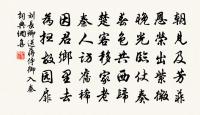 朝見及芳菲
恩榮出紫微
晚光臨仗奏
春色共西歸
楚客移家老
秦人訪舊稀
因君鄉里去
為掃故園扉
劉長卿送蔣侍御入秦
詞典網